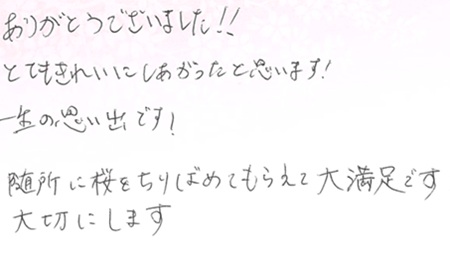 ありがとうございました!!
とてもきれいにしあがったと思います!
一生の思い出です!
随所に桜をちりばめてもらえて大満足です
大切にします